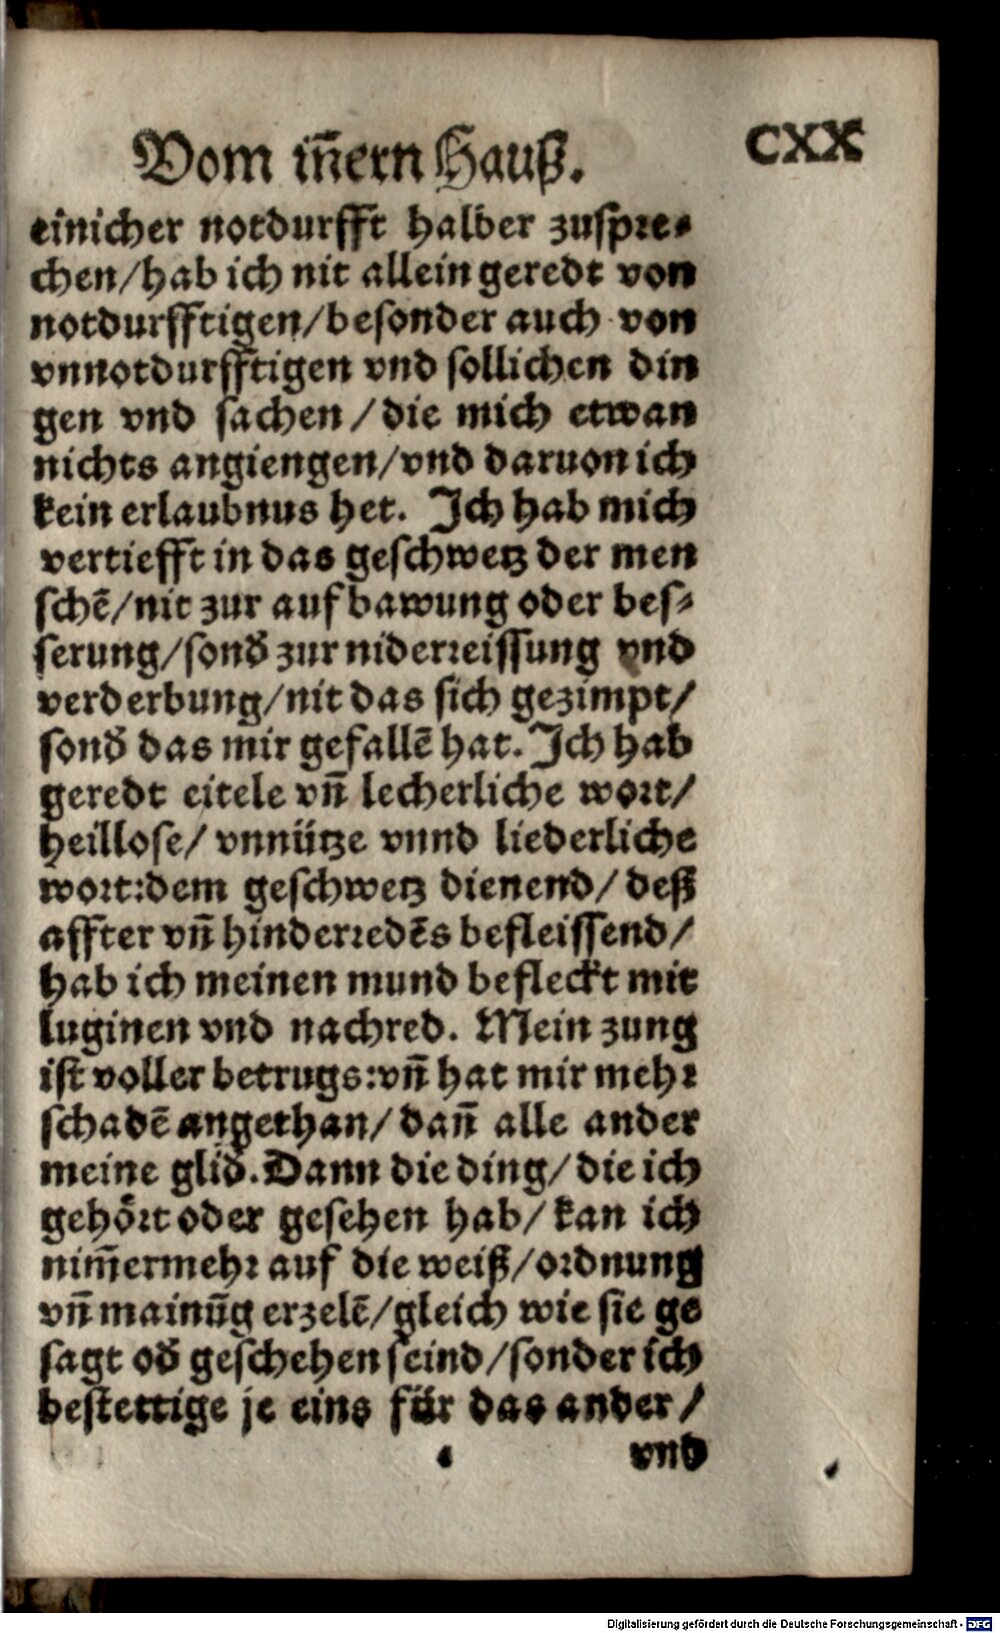 Vom iñern Hauß.
CXX
einicher notdurfft halber zuspre-
chen/hab ich nit allein geredt von
notdurfftigen/besonder auch von
vnnotdurfftigen vnd sollichen din
gen vnd sachen/die mich etwan
nichts angiengen/vnd daruon ich
kein erlaubnus het. Ich hab mich
vertiefft in das geschwetz der men
schẽ/nit zur aufbawung oder bes-
serung/sond̕ zur niderreissung vnd
verderbung/nit das sich gezimpt/
sond̕ das mir gefallẽ hat. Ich hab
geredt eitele vñ lecherliche wort/
heillose/ vnnütze vnnd liederliche
wort:dem geschwetz dienend/ deß
affter vñ hinderredẽs befleissend/
hab ich meinen mund befleckt mit
luginen vnd nachred. Mein zung
ist voller betrugs:vñ hat mir mehr
schadẽ angethan/ dañ alle ander
meine glid̕. Dann die ding/ die ich
gehört oder gesehen hab/ kan ich
nim̃ermehr auf die weiß/ordnung
vñ mainũg erzelẽ/gleich wie sie ge
sagt od̕ geschehen seind/sonder ich
bestettige je eins für das ander/
vnd
Digitalisierung gefördert durch die Deutsche Forschungsgemeinschaft - DFG